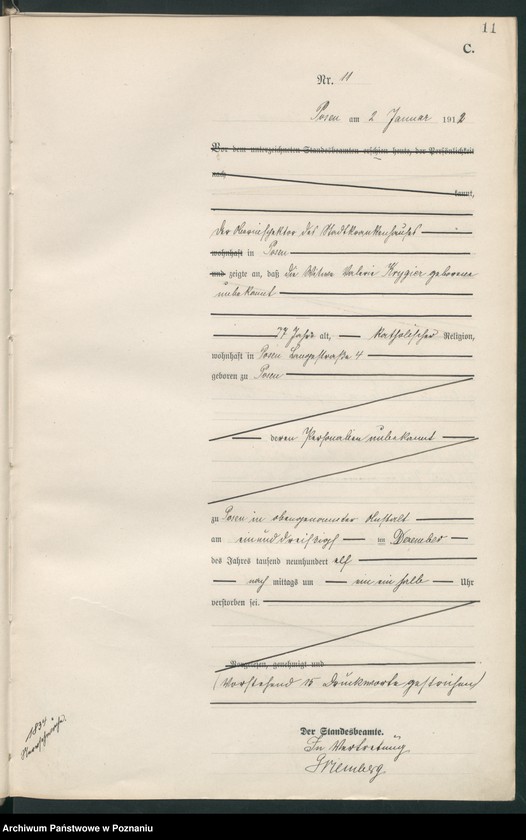 11
C.
Nr. 11
Posen am 2 Januar 1912
Vor dem unterzeichneten Standesbeamten erschien heute, der Persönlichkeit
nach
kannt,
der Oberinspektor des Stadtkrankenhauses
wohnhaft in Posen
und zeigte an, daß die Witwe Valerie Krygier geborene
unbekannt
77 Jahre alt, katholischer Religion,
wohnhaft in Posen Langestraße 4
geboren zu Posen
deren Personalien unbekannt
zu Posen in obengenannter Anstalt
am einunddreißigsten im Dezember
des Jahres tausend neunhundert elf
nach mittags um ein ein halb Uhr
verstorben sei.
Vorgelesen, genehmigt und
(Vorstehend 15 Druckworte gestrichen)
Der Standesbeamte.
In Vertretung
1834
Archiwum Państwowe w Poznaniu